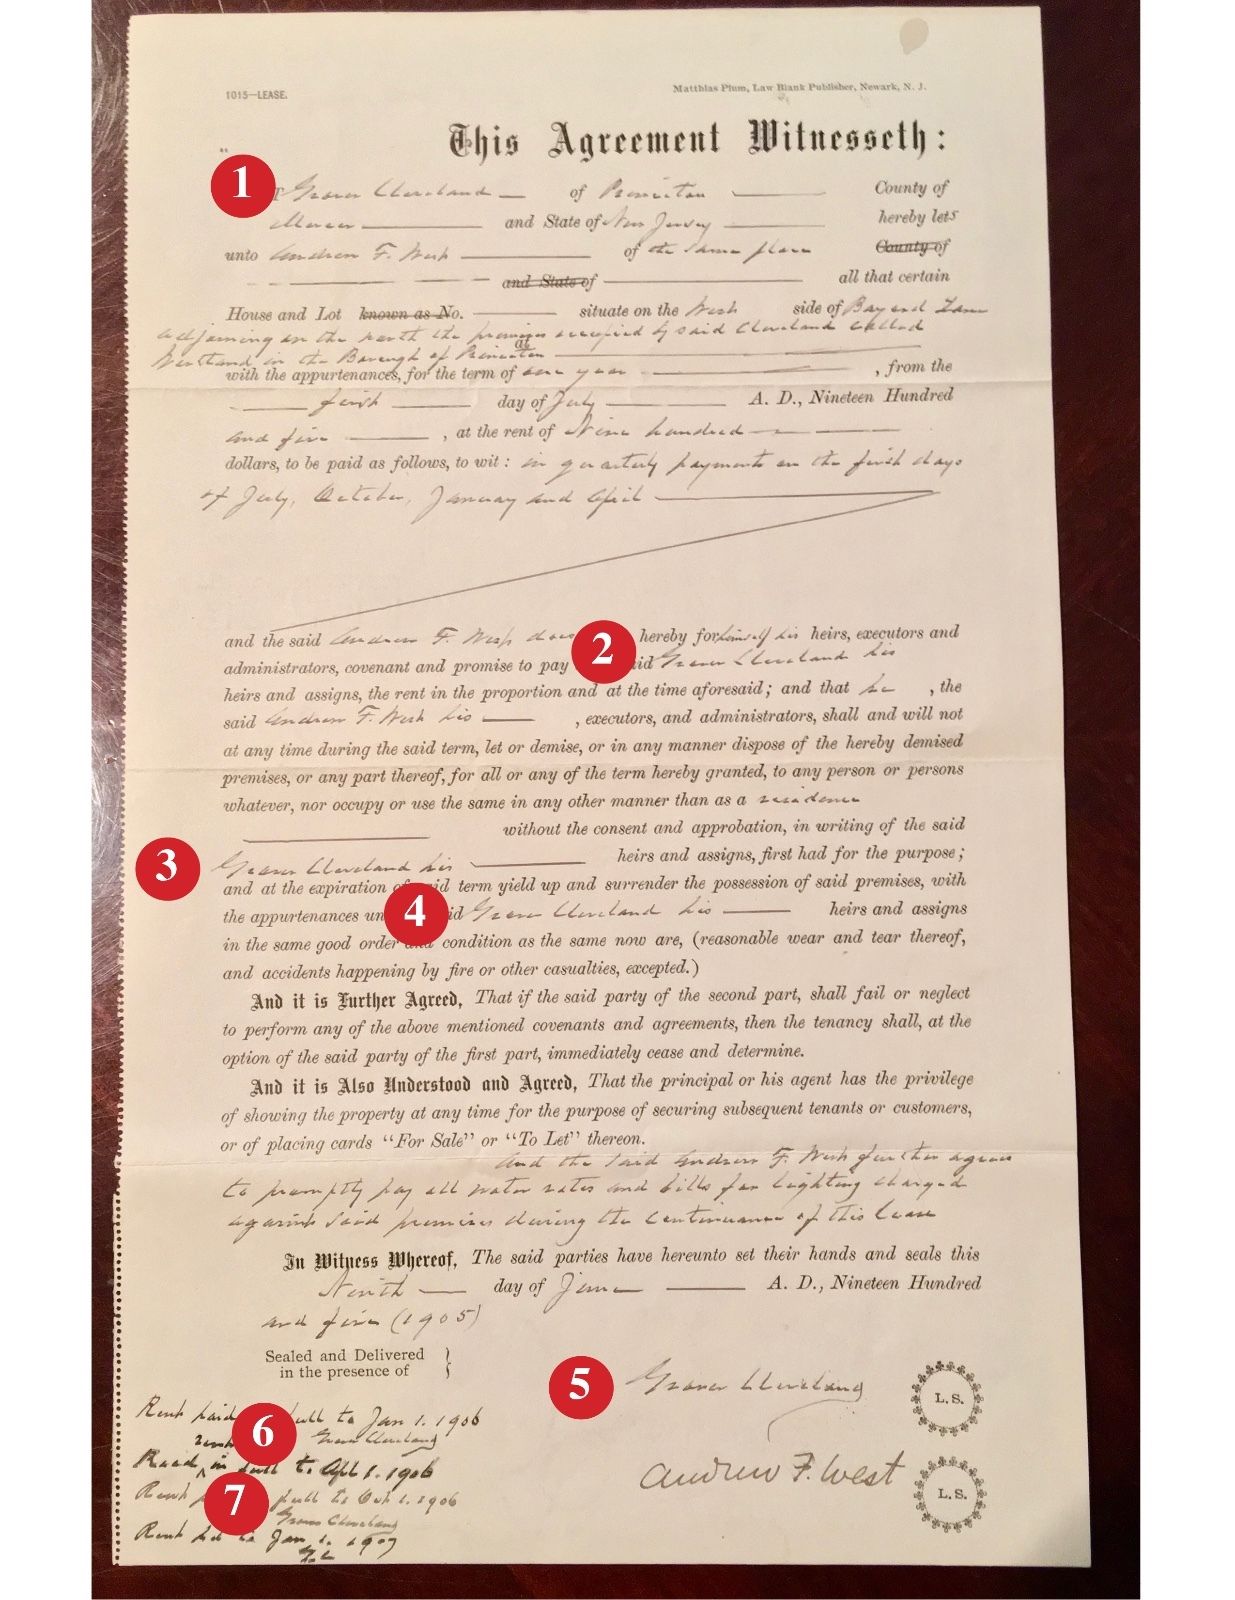 1015—LEASE.
Matthias Plum, Law Blank Publisher, Newark, N. J.
This Agreement Witnesseth:
1 T Grover Cleveland of Princeton County of
Mercer and State of New Jersey hereby lets
unto Andrew F. West of the same place County of
and State of all that certain
House and Lot known as No. situate on the West side of Bayard Lane
adjoining on the north the premises occupied by said Cleveland called
Westland in the Borough of Princeton
at
with the appurtenances, for the term of one year , from the
first day of July A. D., Nineteen Hundred
and five , at the rent of Nine hundred
dollars, to be paid as follows, to wit: in quarterly payments on the first days
of July, October, January and April
and the said Andrew F. West does 2 hereby for himself his heirs, executors and
administrators, covenant and promise to pay id Grover Cleveland his
heirs and assigns, the rent in the proportion and at the time aforesaid; and that he , the
said Andrew F. West his , executors, and administrators, shall and will not
at any time during the said term, let or demise, or in any manner dispose of the hereby demised
premises, or any part thereof, for all or any of the term hereby granted, to any person or persons
whatever, nor occupy or use the same in any other manner than as a residence
without the consent and approbation, in writing of the said
3 Grover Cleveland his heirs and assigns, first had for the purpose;
and at the expiration of said term yield up and surrender the possession of said premises, with
the appurtenances un 4 id Grover Cleveland his heirs and assigns
in the same good order and condition as the same now are, (reasonable wear and tear thereof,
and accidents happening by fire or other casualties, excepted.)
And it is Further Agreed, That if the said party of the second part, shall fail or neglect
to perform any of the above mentioned covenants and agreements, then the tenancy shall, at the
option of the said party of the first part, immediately cease and determine.
And it is Also Understood and Agreed, That the principal or his agent has the privilege
of showing the property at any time for the purpose of securing subsequent tenants or customers,
or of placing cards "For Sale" or "To Let" thereon.
And the said Andrew F. West further agrees
to promptly pay all water rates and bills for lighting charged
against said premises during the continuance of this lease
In Witness Whereof, The said parties have hereunto set their hands and seals this
Ninth day of June A. D., Nineteen Hundred
and five (1905)
Sealed and Delivered
in the presence of
5 Grover Cleveland L. S.
Andrew F. West L. S.
Rent paid full to Jan 1. 1906
6 Grover Cleveland
in full to Apl 1. 1906
Rent 7 full to Oct 1. 1906
Grover Cleveland
Rent to Jan. 1. 1907
G. C.